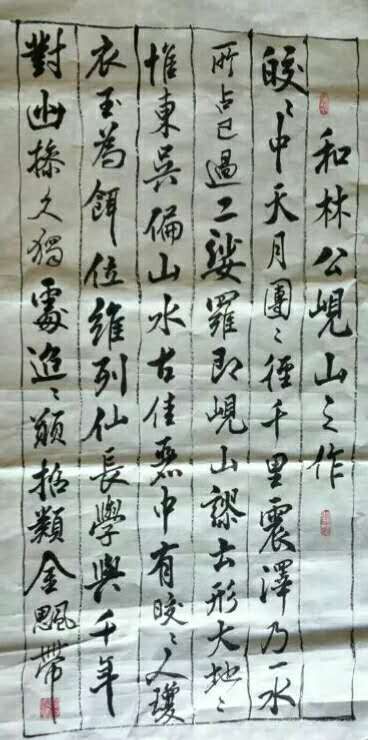 和林公峴山之作
皎〻中天月團〻徑千里震澤乃一水
所占已過二娑羅即峴山謬云形大地〻
惟東吳偏山水古佳麗中有皎〻人瓊
衣玉為餌位維列仙長學與千年
對幽操久獨處迢〻願招類金颸帶